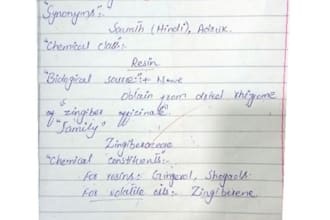 "Synonyms":-
Saunth (Hindi), Adrak.
"Chemical class":-
Resin
"Biological source":+ Name
Obtain from dried rhizome
of "zingiber officinale"
"family"
Zingiberaceae
"Chemical constituents":-
For resins:- Gingerol, Shogaols
For volatile oils:- Zingiberene